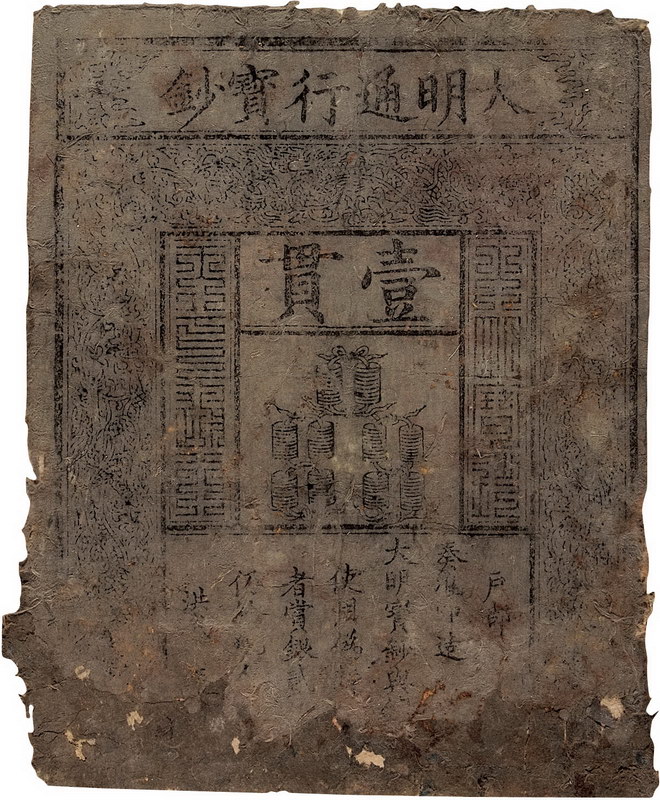 大明通行寶鈔
壹貫
大明寶鈔
天下通行
戶部
奏准印造
大明寶鈔與
使用偽
者賞銀貳
仍給
洪